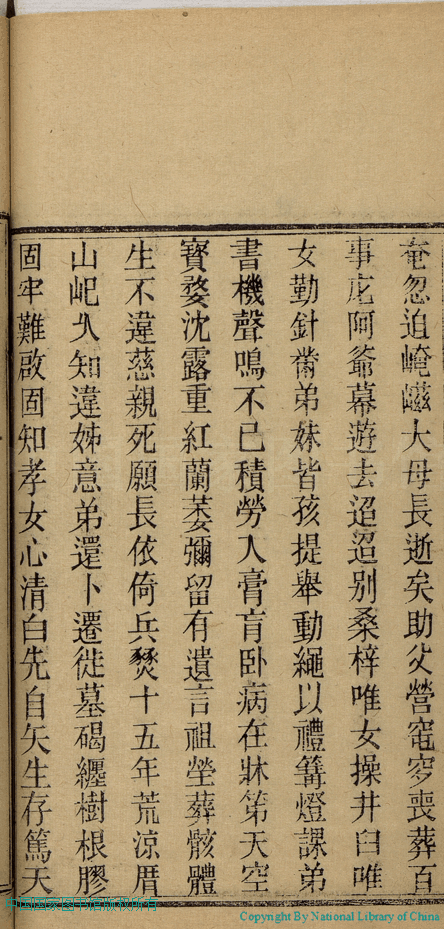 奄忽迫崦嵫大母長逝矣助父營窀穸喪葬百
事庀阿爺幕遊去迢迢別桑梓唯女操井臼唯
女勤針黹弟妹皆孩提舉動繩以禮篝燈課弟
書機聲鳴不已積勞入膏肓臥病在牀第天空
寶婺沈露重紅蘭萎彌留有遺言祖塋葬骸體
生不違慈親死願長依倚兵燹十五年荒涼厝
山屺久知違姊意弟還卜遷徙墓碣纏樹根膠
固牢難啟固知孝女心清白先自矢生存篤天
中国国家图书馆版权所有
Copyright By National Library of China